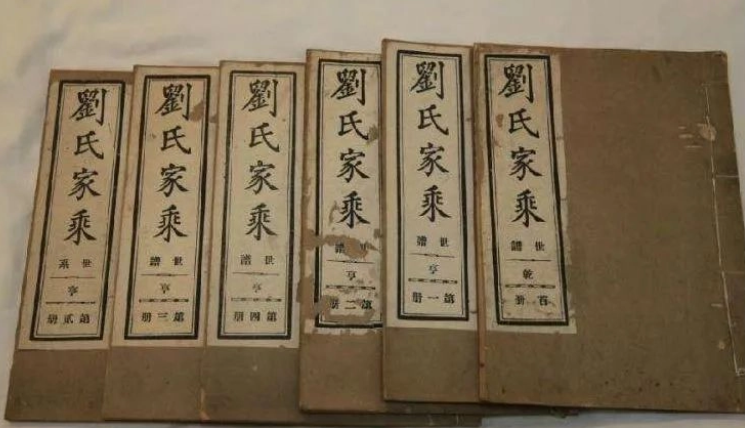 劉氏家乘
世譜
乾
册
劉氏家乘
世譜
亨
第一册
劉氏家乘
世譜
亨
第二册
劉氏家乘
世譜
亨
第四册
劉氏家乘
世譜
亨
第三册
劉氏家乘
世系
亨
第貳册